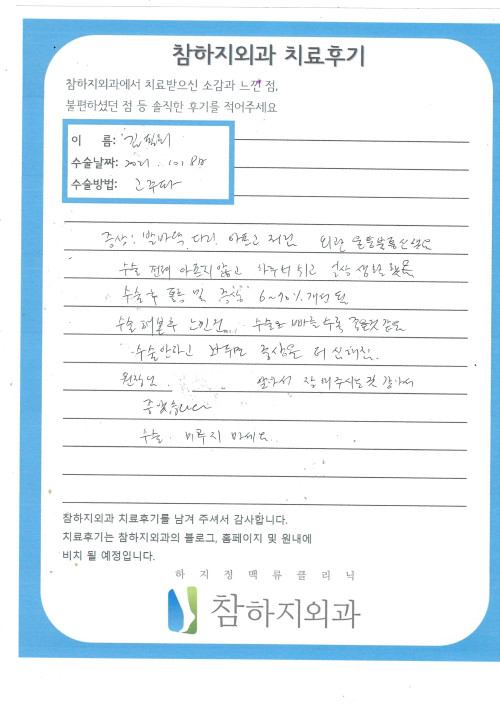 참하지외과 치료후기
참하지외과에서 치료받으신 소감과 느낀 점,
불편하셨던 점 등 솔직한 후기를 적어주세요
이 름:
수술날짜: 2021. 10
수술방법: 고주파
증상: 발바닥, 다리 아프고 저린 외관 울퉁불퉁
수술 전혀 아프지 않고 하루 쉬고 일상 생활
수술 후 통증 및 증상 6~70% 개선 됨
수술 해본 후 느낀건... 수술은 빠를 수록 좋은것 같은
수술안하고 놔두면 증상은 더 심해짐.
원장님 알아서 잘 해주시는것 같아서
좋았습니다
수술. 미루지 마세요.
참하지외과 치료후기를 남겨 주셔서 감사합니다.
치료후기는 참하지외과의 블로그, 홈페이지 및 원내에
비치 될 예정입니다.
하지정맥류클리닉
참하지외과